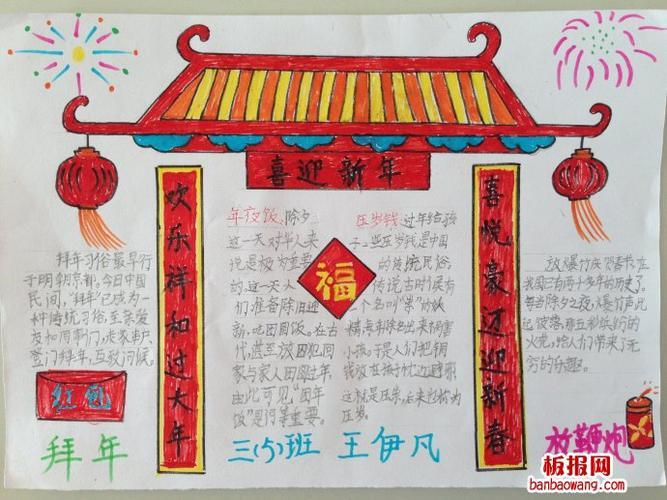 喜迎新年
欢乐祥和过大年
喜悦豪迈迎新春
拜年习俗最早行
于明朝京都。今日中国
民间，“拜年”已成为一
种传统习俗。至亲爱
友如同事门户走家串户
登门拜年，互致问候。
红包
拜年
年夜饭、除夕
这一天对华人来
说是极为重要
的。这一天人
们准备除旧迎
新，吃团圆饭。在古
代，甚至放囚犯回
家与家人团圆过年，
由此可见“团年
饭”是何等重要。
福
压岁钱：过年给孩
子一些压岁钱是中国
的传统民俗。
传说古时候有
一个名叫“祟”的妖
精，每年除夕出来祸害
小孩。于是人们把铜
钱放在孩子枕边避邪
这就是压祟，后来被称为
压岁。
放爆竹庆贺春节在
我国已有两千多年的历史了。
每当除夕之夜，爆竹声此
起彼落，那五彩缤纷的
火花，给人们带来了无
穷的乐趣。
三(5)班 王伊凡
放鞭炮
板报网
banbaowang.com